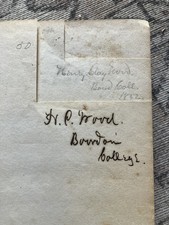 50
Henry Clay Wood
Bowd Coll.
1852
H. C. Wood.
Bowdoin
College.